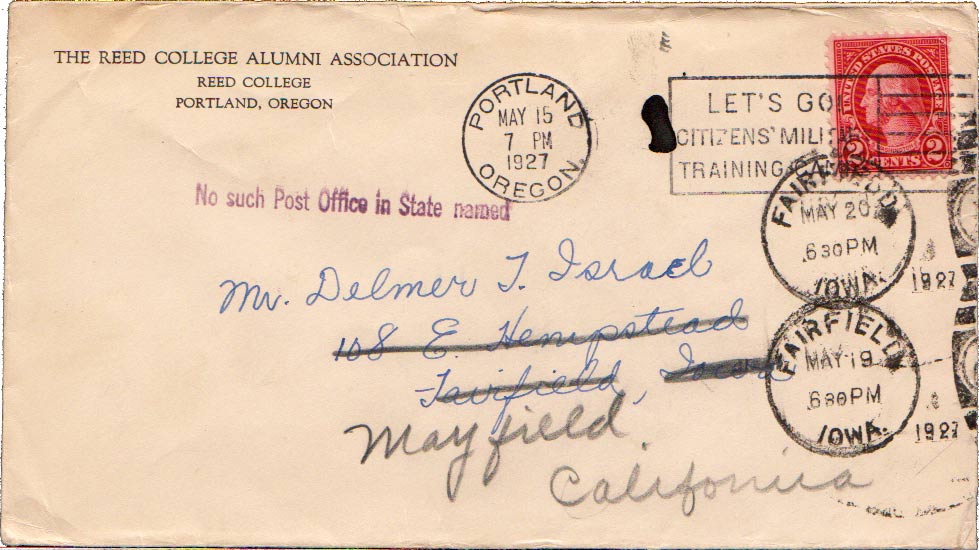 THE REED COLLEGE ALUMNI ASSOCIATION
REED COLLEGE
PORTLAND, OREGON
PORTLAND
MAY 15
7 PM
1927
OREGON.
LET'S GO
CITIZENS' MILI
TRAINING CA
UNITED STATES POSTAGE
2 CENTS 2
No such Post Office in State named
FAIRFIELD
MAY 20
630 PM
IOWA.
1927
Mr. Delmer T. Israel
108 E. Hempstead
Fairfield, Iowa
FAIRFIELD
MAY 19
630 PM
IOWA.
1927
Mayfield.
California